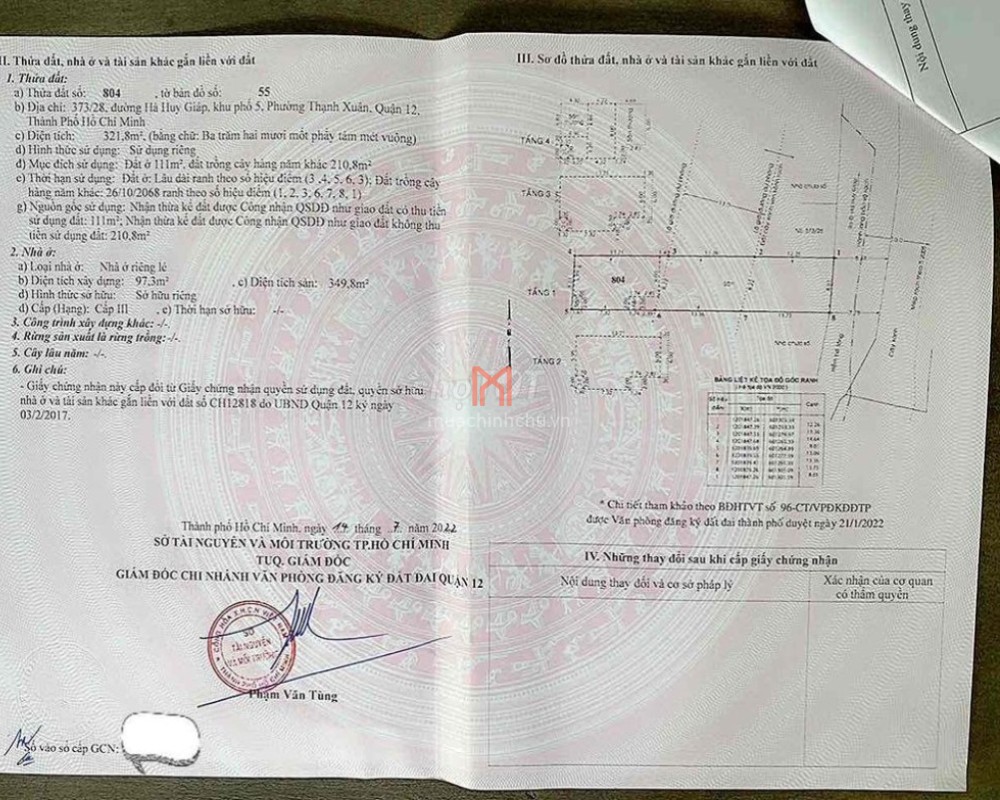 II. Thửa đất, nhà ở và tài sản khác gắn liền với đất
1. Thửa đất:
a) Thửa đất số: 804 , tờ bản đồ số: 55
b) Địa chỉ: 373/28, đường Hà Huy Giáp, khu phố 5, Phường Thạnh Xuân, Quận 12,
Thành Phố Hồ Chí Minh
c) Diện tích: 321,8m², (bằng chữ: Ba trăm hai mươi mốt phẩy tám mét vuông)
d) Hình thức sử dụng: Sử dụng riêng
đ) Mục đích sử dụng: Đất ở 111m², đất trồng cây hàng năm khác 210,8m²
e) Thời hạn sử dụng: Đất ở: Lâu dài ranh theo số hiệu điểm (3, 4, 5, 6, 3); Đất trồng cây
hàng năm khác: 26/10/2068 ranh theo số hiệu điểm (1, 2, 3, 6, 7, 8, 1)
g) Nguồn gốc sử dụng: Nhận thừa kế đất được Công nhận QSDĐ như giao đất có thu tiền
sử dụng đất: 111m²; Nhận thừa kế đất được Công nhận QSDĐ như giao đất không thu
tiền sử dụng đất: 210,8m²
2. Nhà ở:
a) Loại nhà ở: Nhà ở riêng lẻ
b) Diện tích xây dựng: 97,3m² , c) Diện tích sàn: 349,8m²
d) Hình thức sở hữu: Sở hữu riêng
đ) Cấp (Hạng): Cấp III , e) Thời hạn sở hữu: -/-
3. Công trình xây dựng khác: -/-.
4. Rừng sản xuất là rừng trồng: -/-.
5. Cây lâu năm: -/-.
6. Ghi chú:
- Giấy chứng nhận này cấp đổi từ Giấy chứng nhận quyền sử dụng đất, quyền sở hữu
nhà ở và tài sản khác gắn liền với đất số CH12818 do UBND Quận 12 ký ngày
03/2/2017.
Thành phố Hồ Chí Minh, ngày 14 tháng 7 năm 2022
SỞ TÀI NGUYÊN VÀ MÔI TRƯỜNG TP.HỒ CHÍ MINH
TUQ. GIÁM ĐỐC
GIÁM ĐỐC CHI NHÁNH VĂN PHÒNG ĐĂNG KÝ ĐẤT ĐAI QUẬN 12
SỞ
TÀI NGUYÊN
VÀ MÔI TRƯỜNG
Phạm Văn Tùng
Số vào sổ cấp GCN:
III. Sơ đồ thửa đất, nhà ở và tài sản khác gắn liền với đất
TẦNG 4
TẦNG 3
TẦNG 1
804
TẦNG 2
BẢNG LIỆT KÊ TỌA ĐỘ GÓC RANH
* Chi tiết tham khảo theo BĐHTVT số 96-CT/VPĐKĐĐTP
được Văn phòng đăng ký đất đai thành phố duyệt ngày 21/1/2022
IV. Những thay đổi sau khi cấp giấy chứng nhận
Nội dung thay đổi và cơ sở pháp lý
Xác nhận của cơ quan
có thẩm quyền
Nội dung thay
muachinhchu.vn